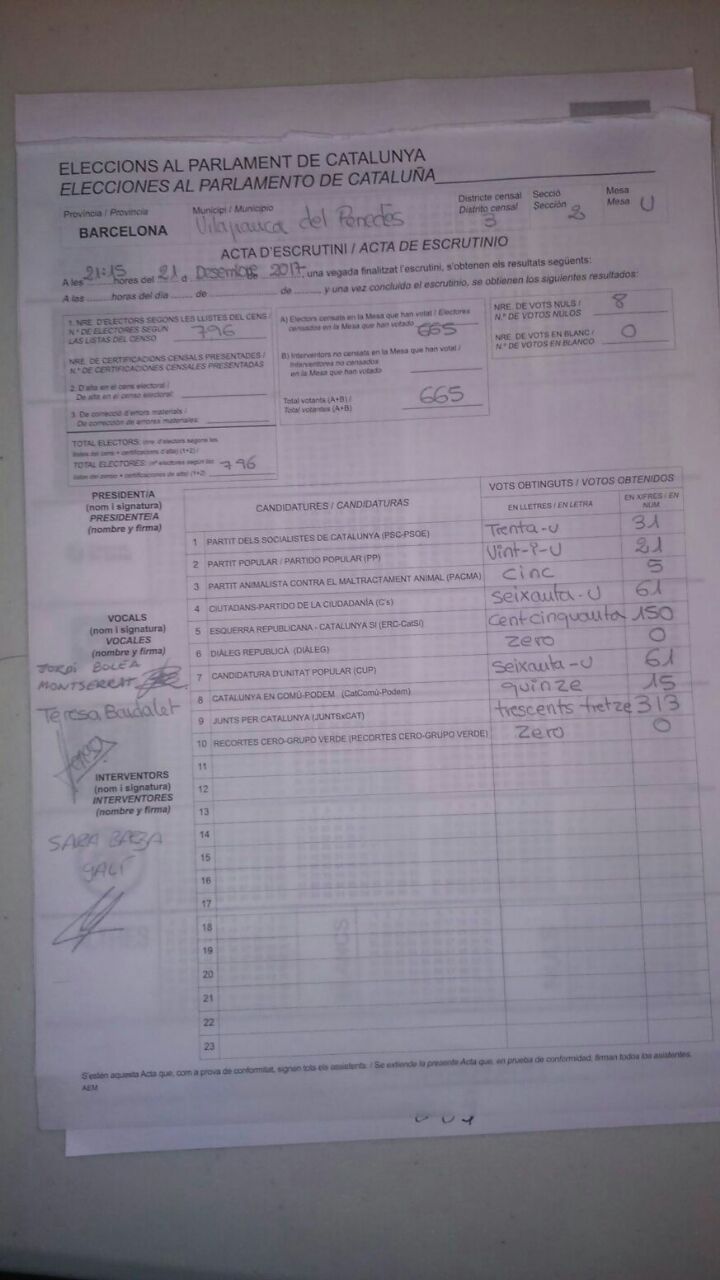 ELECCIONS AL PARLAMENT DE CATALUNYA
ELECCIONES AL PARLAMENTO DE CATALUÑA
Província / Provincia
BARCELONA
Municipi / Municipio
Vilafranca del Penedès
Districte censal
Distrito censal
3
Secció
Sección
2
Mesa
Mesa U
ACTA D'ESCRUTINI / ACTA DE ESCRUTINIO
A les 21:15 hores del 21 d Desembre 2017 una vegada finalitzat l'escrutini, s'obtenen els resultats següents:
A las ........ horas del día ........ de ........ de ........ y una vez concluido el escrutinio, se obtienen los siguientes resultados:
1. NRE. D'ELECTORS SEGONS LES LLISTES DEL CENS /
N.º DE ELECTORES SEGÚN
LAS LISTAS DEL CENSO 796
NRE. DE CERTIFICACIONS CENSALS PRESENTADES /
N.º DE CERTIFICACIONES CENSALES PRESENTADAS
2. D'alta en el cens electoral /
De alta en el censo electoral:
3. De correcció d'errors materials /
De corrección de errores materiales:
TOTAL ELECTORS: (nre. d'electors segons les
llistes del cens + certificacions d'alta) (1+2) /
TOTAL ELECTORES: (nº electores según las
listas del censo + certificaciones de alta) (1+2) 796
A) Electors censats en la Mesa que han votat / Electores
censados en la Mesa que han votado 665
B) Interventors no censats en la Mesa que han votat /
Interventores no censados
en la Mesa que han votado
Total votants (A+B) /
Total votantes (A+B) 665
NRE. DE VOTS NULS /
N.º DE VOTOS NULOS 8
NRE. DE VOTS EN BLANC /
N.º DE VOTOS EN BLANCO 0
PRESIDENT/A
(nom i signatura)
PRESIDENTE/A
(nombre y firma)
VOCALS
(nom i signatura)
VOCALES
(nombre y firma)
JORDI BOLEA
MONTSERRAT
Teresa
INTERVENTORS
(nom i signatura)
INTERVENTORES
(nombre y firma)
SARA
GALÍ
CANDIDATURES / CANDIDATURAS
VOTS OBTINGUTS / VOTOS OBTENIDOS
EN LLETRES / EN LETRA
EN XIFRES / EN NÚM.
1 PARTIT DELS SOCIALISTES DE CATALUNYA (PSC-PSOE) Trenta-u 31
2 PARTIT POPULAR / PARTIDO POPULAR (PP) Vint-i-u 21
3 PARTIT ANIMALISTA CONTRA EL MALTRACTAMENT ANIMAL (PACMA) cinc 5
4 CIUTADANS-PARTIDO DE LA CIUDADANÍA (C's) seixanta-u 61
5 ESQUERRA REPUBLICANA - CATALUNYA SÍ (ERC-CatSí) cent cinquanta 150
6 DIÀLEG REPUBLICÀ (DIÀLEG) zero 0
7 CANDIDATURA D'UNITAT POPULAR (CUP) seixanta-u 61
8 CATALUNYA EN COMÚ-PODEM (CatComú-Podem) quinze 15
9 JUNTS PER CATALUNYA (JUNTSxCAT) trescents tretze 313
10 RECORTES CERO-GRUPO VERDE (RECORTES CERO-GRUPO VERDE) zero 0
11
12
13
14
15
16
17
18
19
20
21
22
23
S'estén aquesta Acta que, com a prova de conformitat, signen tots els assistents. / Se extiende la presente Acta que, en prueba de conformidad, firman todos los asistentes.
AEM